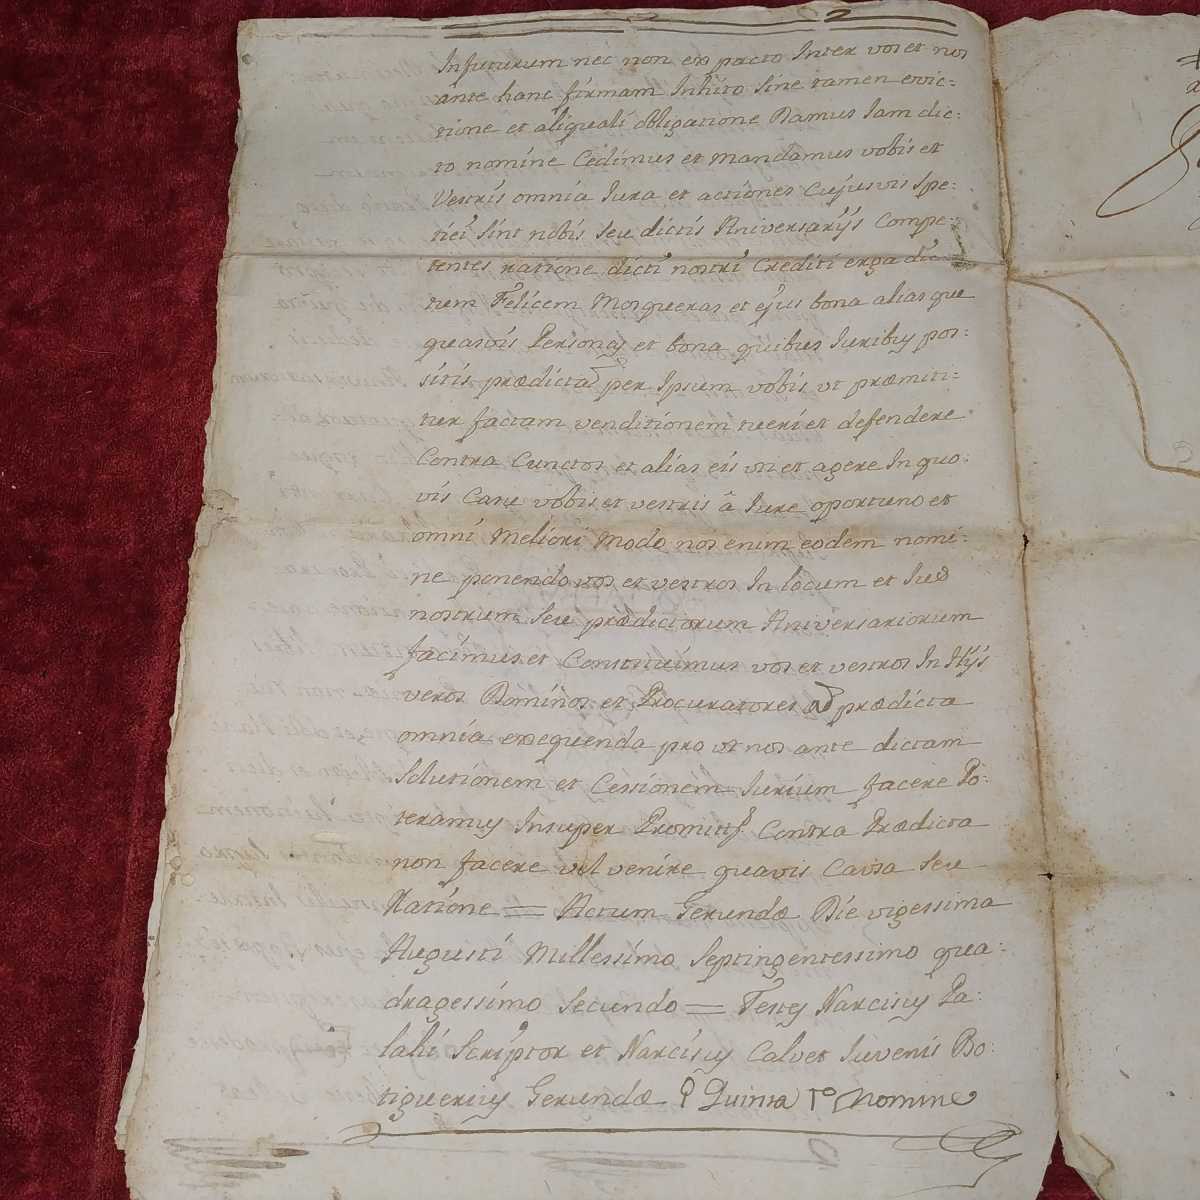 Infuturum nec non ex pacto Inter vos et nos
ante hanc firmam Inhito Sine tamen evic-
tione et aliquali obligatione Damus Jam dic-
to nomine Cedimus et Mandamus vobis et
Vestris omnia Jura et actiones Cujusvis Spe-
tiei Sint nobis Seu dictis Aniversarijs Compe-
tentes ratione dicti nostri Crediti erga dic-
tum Felicem Mosqueras et ejus bona alias que
quasvis Personas et bona quibus Juribus pos-
sitis prædictam per Ipsum vobis ut præmiti-
tur factam venditionem tueri et defendere
Contra Cunctos et alias eis uti et agere In quo-
vis Casu vobis et vestris â Jure oportuno et
omni Meliori Modo nos enim eodem nomi-
ne ponendo vos et vestros In locum et Jus
nostrum Seu prædictorum Aniversariorum
facimus et Constituimus vos et vestros In Hijs
veros Dominos et Procuratores ad prædicta
omnia exequenda pro ut nos ante dictam
Solutionem et Cessionem Jurium facere Po-
teramus Insuper Promitt. Contra Prædicta
non facere vel venire quavis Causa Seu
Ratione = Actum Gerundæ Die vigessima
Augusti Millessimo Septingentessimo qua-
dragessimo Secundo = Testes Narcisus Pa-
lahi Scriptor et Narcisus Calvet Juvenis Bo-
tiguerius Gerundæ Quinta Nomine